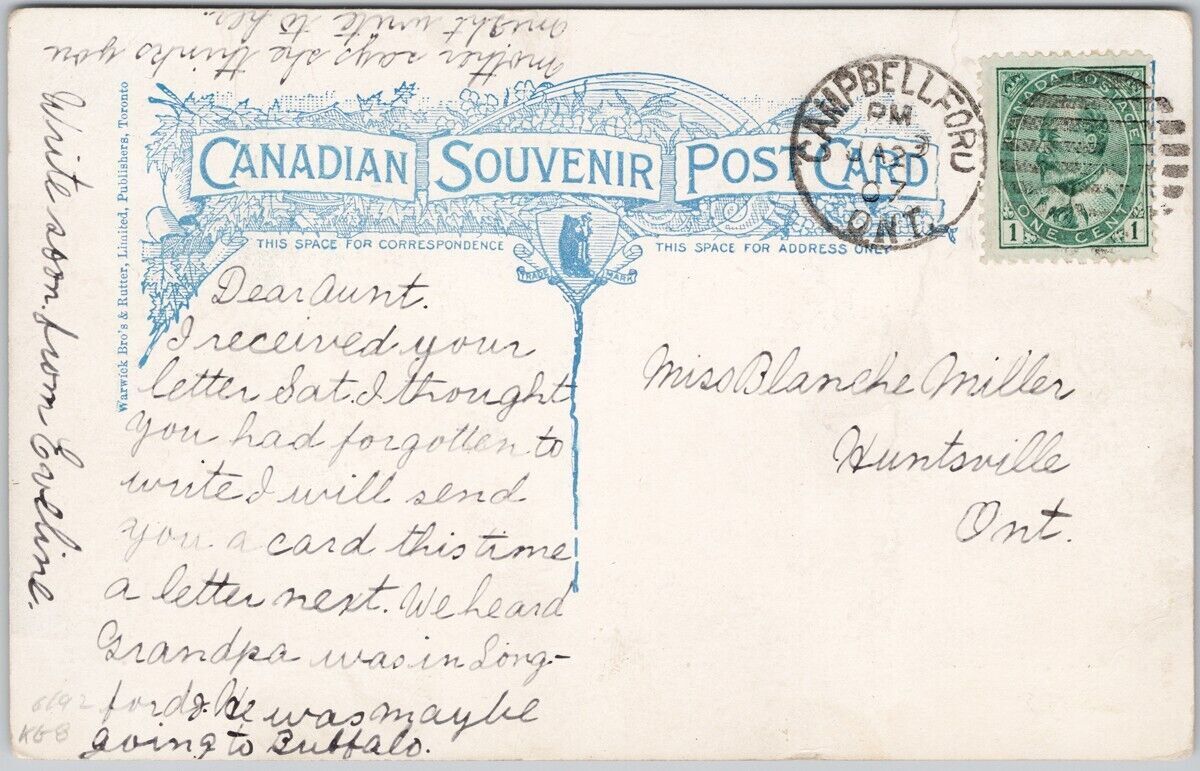 mother says she thinks you
might write to her.
CANADIAN SOUVENIR POST CARD
THIS SPACE FOR CORRESPONDENCE
THIS SPACE FOR ADDRESS ONLY
TRADE MARK
CAMPBELLFORD
PM
JA 23
07
ONT.
CANADA POSTAGE
1 ONE CENT 1
Warwick Bro's & Rutter, Limited, Publishers, Toronto
Dear Aunt.
I received your
letter Sat. I thought
you had forgotten to
write I will send
you a card this time
a letter next. We heard
Grandpa was in Long-
ford. He was maybe
going to Buffalo.
Write soon. from Eveline.
Miss Blanche Miller
Huntsville
Ont.
6692
KGB